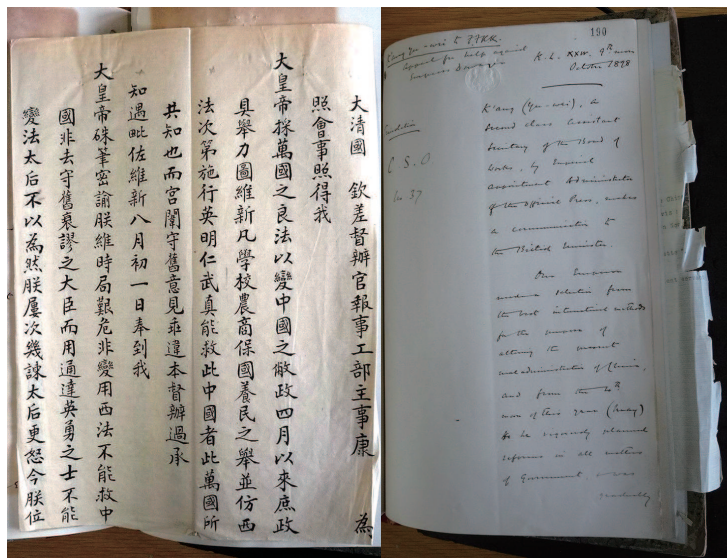 大清國 欽差督辦官報事工部主事康 為
照會事照得我
大皇帝採萬國之良法以變中國之敝政四月以來庶政
具舉力圖維新凡學校農商保國養民之舉並仿西
法次第施行英明仁武真能救此中國者此萬國所
共知也而宮闈守舊意見乖違本督辦過承
知遇毗佐維新八月初一日奉到我
大皇帝硃筆密諭朕維時局艱危非變用西法不能救中
國非去守舊衰謬之大臣而用通達英勇之士不能
變法太后不以為然朕屢次幾諫太后更怒今朕位
190
Kang Yu-wei to
Appeal for help against
Empress Dowager
K. S. XXIV. 9th moon
October 1898
C S O
No 37
K'ang (Yu-wei), a
second class assistant
Secretary of the Board of
Works, by Imperial
appointment Administrator
of the Official Press, makes
a communication to
the British Minister.
Our Emperor
made a selection from
the best international methods
for the purpose of
altering the present
maladministration of China,
and from the 4th
moon of this year (May)
he vigorously planned
reforms in all matters
of Government & was
gradually